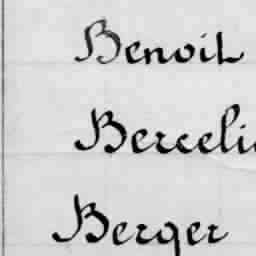 Benoit
Berceli
Berger